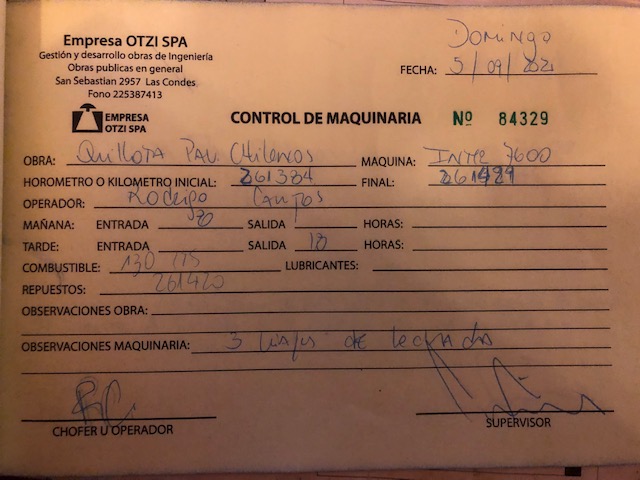 Empresa OTZI SPA
Gestión y desarrollo obras de Ingeniería
Obras publicas en general
San Sebastian 2957 Las Condes
Fono 225387413
Domingo
FECHA: 5/09/2021
EMPRESA
OTZI SPA
CONTROL DE MAQUINARIA Nº 84329
OBRA: Quillota Pau Chilenos MAQUINA: INTR 7600
HOROMETRO O KILOMETRO INICIAL: 261384 FINAL: 261429
OPERADOR: Rodrigo Campos
MAÑANA: ENTRADA SALIDA HORAS:
TARDE: ENTRADA SALIDA 18 HORAS:
COMBUSTIBLE: 130 LTS LUBRICANTES:
REPUESTOS: 261420
OBSERVACIONES OBRA:
OBSERVACIONES MAQUINARIA: 3 de lechadas
CHOFER U OPERADOR
SUPERVISOR